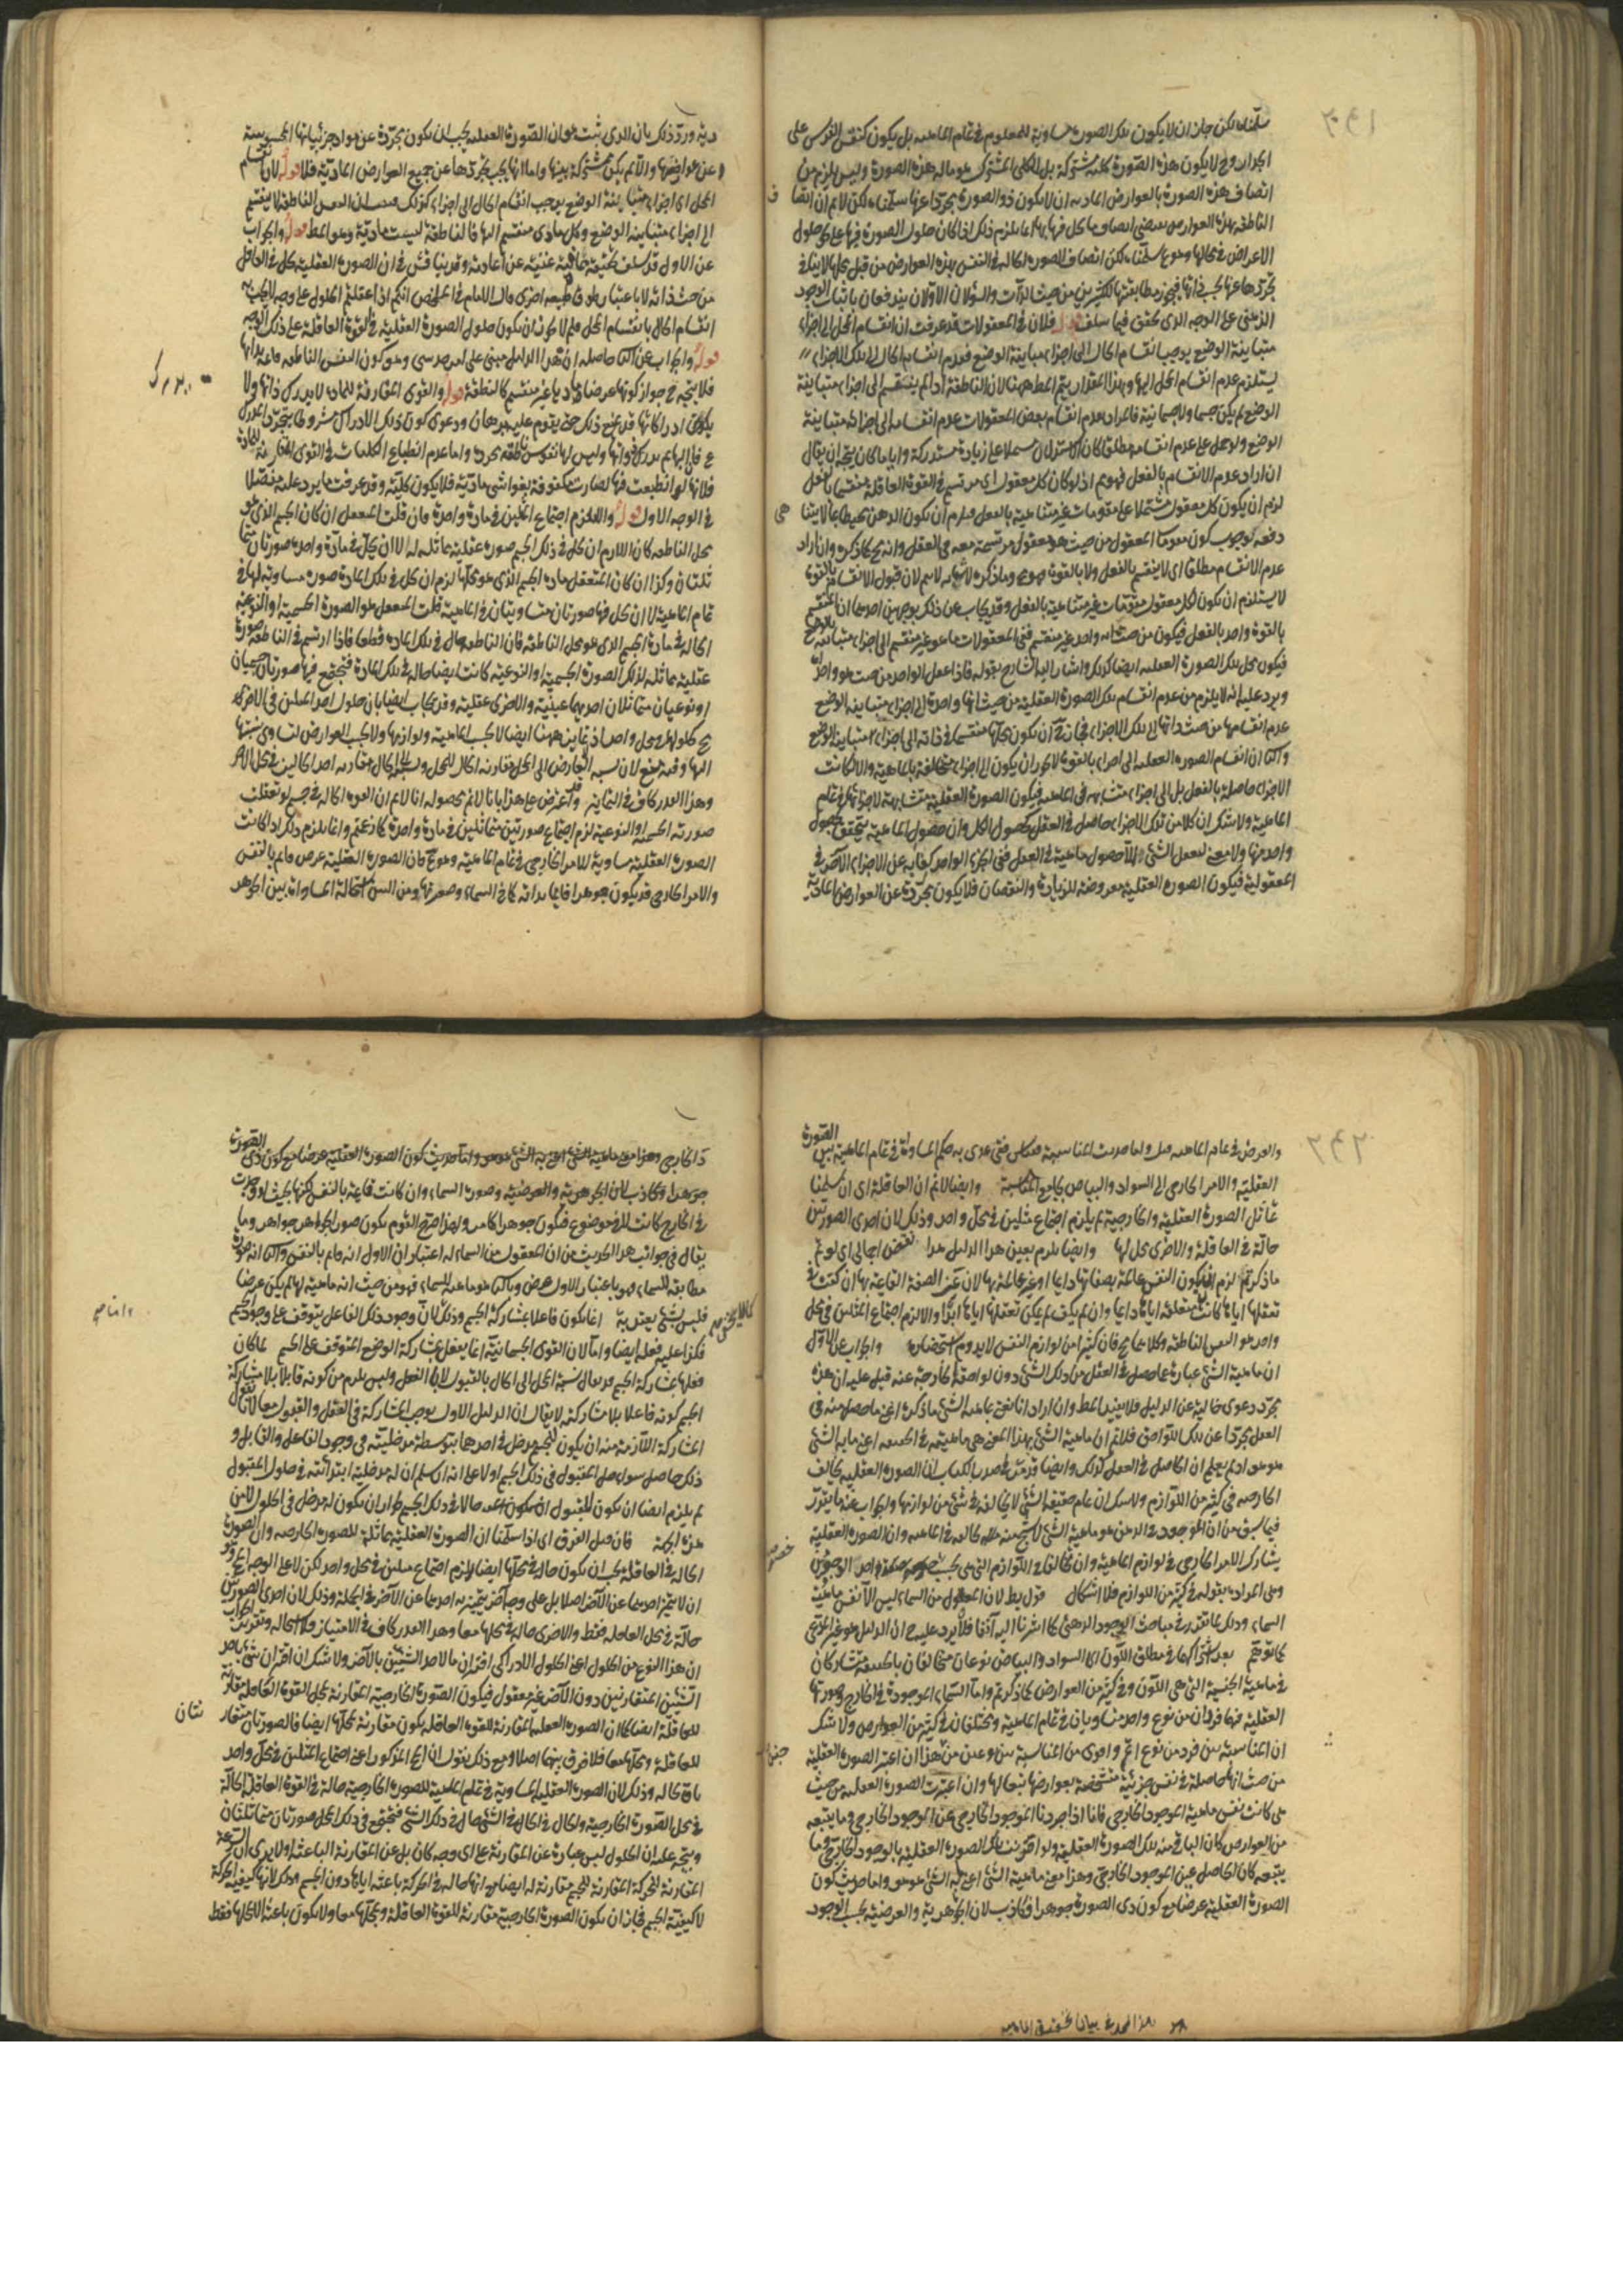 سلمناه لكن جاز ان لا يكون تلك الصورة مساوية للمعلوم في تمام الماهية بل يكون كنقش الفرس على
الجدار وح لا يكون هذه الصورة كلية مشتركة بل الكلي المشترك هو ماله هذه الصورة وليس يلزم من
اتصاف هذه الصورة بالعوارض المادية ان لا يكون ذو الصورة مجردا عنها سلمناه لكن لانم ان اتصاف
الناطقة بهذه العوارض يقتضي اتصاف ما يحل فيها بها انما يلزم ذلك اذا كان حلول الصورة فيها على نحو حلول
الاعراض في محالها وهو ع سلمناه لكن اتصاف الصورة الحالة في النفس بهذه العوارض من قبل محلها لا ينافي
تجردها عنها بحسب ذاتها فيجوز مطابقتها للكثيرين من حيث الذات والسؤالان الاولان يندفعان باثبات الوجود
الذهني على الوجه الذي تحقق فيما سلف قوله فلان في المعقولات قد عرفت ان انقسام المحل الى اجزاء
متباينة الوضع يوجب انقسام الحال الى اجزاء متباينة الوضع فعدم انقسام الحال الى تلك الاجزاء
يستلزم عدم انقسام المحل اليها وبهذا المقدار يتم المط ههنا لان الناطقة اذا لم ينقسم الى اجزاء متباينة
الوضع لم يكن جسما ولا جسمانية فالمراد بعدم انقسام بعض المعقولات عدم انقسامه الى اجزاء متباينة
الوضع ولو حمل على عدم انقسامه مطلقا كان الاستدلال مشتملا على زيادة مستدركة واياما كان يتجه ان يقال
ان اراد عدم الانقسام بالفعل فهو مم اذ لو كان كل معقول اي مرتسم في القوة العاقلة منقسما بالفعل
لزم ان يكون كل معقول مشتملا على مقومات غير متناهية بالفعل فيلزم ان يكون الذهن محيطا بما لا يتناهى
دفعة لوجوب كون مقومات المعقول من حيث هو معقول مرتسمة معه في العقل وانه مح كما ذكره وان اراد
عدم الانقسام مطلقا اي لا ينقسم بالفعل ولا بالقوة فهو مم وما ذكره لاثباته لا يتم لان قبول الانقسام بالقوة
لا يستلزم ان يكون لكل معقول مقومات غير متناهية بالفعل وقد يجاب عن ذلك بوجهين احدهما ان المنقسم
بالقوة واحد بالفعل فيكون من حيث انه واحد غير منقسم ففي المعقولات ما هو غير منقسم الى اجزاء متباينة الوضع
فيكون محل تلك الصورة العقلية ايضا كذلك واشار اليه الشارح بقوله فاذا عقل الواحد من حيث هو واحد
ويرد عليه انه لا يلزم من عدم انقسام تلك الصورة العقلية من حيث انها واحدة الى اجزاء متباينة الوضع
عدم انقسامها من حيث ذاتها الى تلك الاجزاء فجاز ان يكون محلها منقسما في ذاته الى اجزاء متباينة الوضع
والثاني ان انقسام الصورة العقلية الى اجزاء بالقوة لا يجوز ان يكون الى اجزاء متخالفة بالماهية والا لكانت
الاجزاء حاصلة بالفعل بل الى اجزاء متشابهة في الماهية فيكون الصورة العقلية متشابهة لاجزائها في تمام
الماهية ولا شك ان كلا من تلك الاجزاء حاصل في العقل كحصول الكل وان حصول الماهية يتحقق بحصول
واحد منها ولا معنى لتعقل الشئ الا حصول ماهيته في العقل ففي الجزء الواحد كفاية عن الاجزاء الاخر في
المعقولية فيكون الصورة العقلية معروضة للزيادة والنقصان فلا يكون مجردة عن العوارض المادية
دية ورد ذلك بان الذي ثبت هو ان الصورة العقلية يجب ان يكون مجردة عن مواد جزئياتها المحسوسة
وعن عوارضها والا لم يكن مشتركة بينها واما انها يجب تجردها عن جميع العوارض المادية فلا قوله لان انقسام
المحل الى اجزاء متباينة الوضع يوجب انقسام الحال الى اجزاء كذلك فثبت ان النفس الناطقة لا ينقسم
الى اجزاء متباينة الوضع وكل مادي منقسم اليها فالناطقة ليست مادية وهو المط قوله والجواب
عن الاول قد سلف تحقيقه غنية عن اعادته وقد يناقش في ان الصورة العقلية تحل في العاقل
من حيث ذاته لا باعتبار لحوق طبيعة اخرى قال الامام في الملخص انكم اذا عقلتم الحلول على وجه لا يجب به
انقسام الحال بانقسام المحل فلم لا يجوز ان يكون حلول الصورة العقلية في القوة العاقلة على ذلك الوجه
قوله والجواب عن الثاني حاصله ان هذا الدليل مبني على امر حدسي وهو كون النفس الناطقة
فلا يتجه ح جواز كونها عرضا ماديا غير منقسم كالنقطة قوله والقوى المقارنة للمادة لا يدرك ذاتها ولا
يكون ادراكاتها قد يمنع ذلك حتى يقوم عليه برهان ودعوى كون ذلك الادراك مشروطا بتجرد المدرك
ع فان البهائم يدرك ذواتها وليس لها نفوس ناطقة مجردة واما عدم انطباع الكليات في القوى المقارنة للمادة
فلانها لو انطبعت فيها لصارت مكفوفة بغواشي مادية فلا يكون كلية وقد عرفت ما يرد عليه مفصلا
في الوجه الاول قوله والا لزم اجتماع المثلين في مادة واحدة فان قلت المتعقل ان كان الجسم الذي هو
محل الناطقة كان اللازم ان يحل في ذلك الجسم صورة عقلية مماثلة له لا ان يحل في مادة واحدة صورتان متما
ثلتان وكذا ان كان المتعقل مادة الجسم الذي هو محلها لزم ان يحل في تلك المادة صورة مساوية لها في
تمام الماهية لا ان يحل فيها صورتان متساويتان في الماهية قلت المتعقل هو الصورة الجسمية او النوعية
الحالة في مادة الجسم الذي هو محل الناطقة فان الناطقة حال في تلك المادة قطعا فاذا ارتسم في الناطقة صورة
عقلية مماثلة لذلك الصورة الجسمية او النوعية كانت ايضا حالة في تلك المادة فتجتمع فيها صورتان جسميتان
او نوعيتان متماثلتان احديهما عينية والاخرى عقلية وقد يجاب ايضا بان حلول احد المثلين في الاخر
مح كحلولهما في محل واحد اذ لا تمايز ههنا ايضا لا بحسب الماهية ولوازمها ولا بحسب العوارض لتساوي نسبتها
اليهما وفيه منع لان نسبة العارض الى المحل مقارنة الحال للمحل ونسبته الى الحال مقارنة احد الحالين في محل للاخر
وهذا القدر كاف في التمايز قوله واعترض على هذا بانا لانم بحصوله انا لانم ان القوة الحالة في جسم لو تعقلت
صورته الجسمية او النوعية لزم اجتماع صورتين متماثلتين في مادة واحدة كما زعتم وانما يلزم ذلك اذا كانت
الصورة العقلية مساوية للامر الخارجي في تمام الماهية وهو مح فان الصورة العقلية عرض قائم بالنفس
والامر الخارجي قد يكون جوهرا قائما بذاته كما في السماء وصورتها ومن البين استحالة المساواة بين الجوهر
والعرض في تمام الماهية قيل واما حديث المناسبة فعكس ففي عدى به حكم المساواة في تمام الماهية بين الصورة
العقلية والامر الخارجي الى السواد والبياض بجامع المناسبة وايضا لانم ان العاقلة اي ان سلمنا
تماثل الصورة العقلية والخارجية لم يلزم اجتماع مثلين في محل واحد وذلك لان احدى الصورتين
حالة في العاقلة والاخرى محل لها وايضا يلزم بعين هذا الدليل هذا نقض اجمالي اي لو تم
ما ذكرتم لزم ان يكون النفس عالمة بصفاتها دائما او غير عالمة بها لان غير الصفة القائمة بها ان كفت في
تعقلها اياها كانت متعقلة اياها دائما وان لم يكف لم يكن تعقلها اياها ابدا والا لزم اجتماع المثلين في محل
واحد هو النفس الناطقة وكلاهما مح فان كثيرا من لوازم النفس لا يدوم استحضاره والجواب عن الاول
ان ماهية الشئ عبارة عما حصل في العقل من ذلك الشئ دون لواحقه الخارجة عنه قيل عليه ان هذه
مجرد دعوى خالية عن الدليل فلا يفيد المط وان اراد انا نعني بماهية الشئ ما ذكره اعني ما حصل منه في
العقل مجردا عن تلك اللواحق فلانم ان ماهية الشئ بهذا المعنى هي ماهيته في الحقيقة اعني ما به الشئ
هو هو اذ لم يعلم ان الحاصل في العقل كذلك وايضا قد مر في صدر الكتاب ان الصورة العقلية يخالف
الخارجية في كثير من اللوازم ولا شك ان تمام حقيقة الشئ لا يخالفه في شئ من لوازمها والجواب عنه ما يقرر
فيما سبق من ان الموجود في الذهن هو ماهية الشئ لا شبح منه مثله مخالفة في الماهية وان الصورة العقلية
يشارك الامر الخارجي في لوازم الماهية وان تخالفا في اللوازم التي هي بحسب خصوص واحد الوجودين
وهي المرادة بقوله في كثير من اللوازم فلا اشكال قوله بط لان المعقول من السماء ليس الا نفس ماهية
السماء وذلك لما تقدر في مباحث الوجود الذهني كما اشرنا اليه آنفا فلا يرد عليه ح ان الدليل هو غير المدعى
كما توهم بعد اشتراكهما في مطلق اللون اي السواد والبياض نوعان متخالفان بالحقيقة متشاركان
في ماهية الجنسية التي هي اللون وفي كثير من العوارض كما ذكرتم واما السماء الموجودة في الخارج وصورتها
العقلية فهما فردان من نوع واحد متساويان في تمام الماهية ومختلفان في كثير من العوارض ولا شك
ان المناسبة بين فردين من نوع اتم واقوى من المناسبة بين نوعين من جنس هذا ان اعتبر الصورة العقلية
من حيث انها حاصلة في نفس جزئية متشخصة بعوارضها بمحالها وان اعتبرت الصورة العقلية من حيث
هي كانت نفس ماهية الموجود الخارجي فانا اذا جردنا الموجود الخارجي عن الموجود الخارجي وما يتبعه
من العوارض كان الباقي منه تلك الصورة العقلية ولو اقترنت تلك الصورة العقلية بالوجود الخارجي وما
يتبعه كان الحاصل عين الموجود الخارجي وهذا معنى ماهية الشئ اعني ما به الشئ هو هو واما حديث كون
الصورة العقلية عرضا مع كون ذي الصورة جوهرا فكاذب لان الجوهرية والعرضية بحسب الوجود
ذ الخارجي وهذا معنى ماهية الشئ اعني به الشئ هو هو واما حديث كون الصورة العقلية عرضا مع كون ذي الصورة
جوهرا فكاذب لان الجوهرية والعرضية وصورة السماء وان كانت قائمة بالنفس لكنها بحيث لو وجدت
في الخارج كانت لا في موضوع فيكون جوهرا كما مر ولهذا صرح القوم بكون صور الجواهر جواهر وما
يقال في جواب هذا الحديث من ان المعقول من السماء له اعتباران الاول انه قائم بالنفس والثاني انه صورة
مطابقة للسماء فهو باعتبار الاول عرض وبالثاني هو ماهية السماء فهو من حيث انه ماهية لها لم يكن عرضا
فليس بشئ يعتد به انما يكون فاعلا بمشاركة الجسم وذلك لان وجود ذلك الفاعل يتوقف على وجود الجسم
فكذا عليه فعله ايضا واما لان القوى الجسمانية انما يفعل بمشاركة الوضع المتوقف على الجسم لما كان
فعلها بمشاركة الجسم قد يقال نسبة المحل الى الحال بالقبول لا بالفعل وليس يلزم من كونه قابلا بلا مشاركة
الجسم كونه فاعلا بلا مشاركته لا يقال ان الدليل الاول يوجب المشاركة في الفعل والقبول معا لانا نقول
المشاركة اللازمة منه ان يكون للجسم مدخل في احدهما بتوسطه مدخليته في وجود الفاعل والقابل و
ذلك حاصل سواء حل المقبول في ذلك الجسم او لا على انه ان سلم ان له مدخلية ابتدائية في حلول المقبول
لم يلزم ايضا ان يكون المقبول حالا في ذلك الجسم لجواز ان يكون له مدخل في الحلول لا من
هذه الجهة فان قيل الفرق اي اذا سلمنا ان الصورة العقلية مماثلة للصورة الخارجية وان الصورة
الحالة في العاقلة يجب ان يكون حالة في محلها ايضا لم يلزم اجتماع مثلين في محل واحد لكن لا على الوجه المح وهو
ان لا يتميز احدهما عن الاخر اصلا بل على وجه آخر يتميز به احدهما عن الاخر في الجملة وذلك لان احدى الصورتين
حالة في محل العاقلة فقط والاخرى حالة في محلها معا وهذا القدر كاف في الامتياز فلا استحالة وتقرير الجواب
ان هذا النوع من الحلول اعني الحلول الادراكي اقتران ما لاحد الشيئين بالاخر ولا شك ان اقتران شئ باحد
الشيئين المتقارنين دون الاخر غير معقول فيكون الصورة الخارجية المقارنة لمحل القوة العاقلة مقارنة
للعاقلة ايضا كما ان الصورة العقلية المقارنة للقوة العاقلة يكون مقارنة لمحلها ايضا فالصورتان متقارنتان
للعاقلة ومحلها معا فلا فرق بينهما اصلا ومع ذلك نقول ان المح المذكور اعني اجتماع المثلين في محل واحد
باق بحاله وذلك لان الصورة العقلية المساوية في تمام الماهية للصورة الخارجية حالة في القوة العاقلة الحالة
في محل الصورة الخارجية والحال في الحال في الشئ حال في ذلك الشئ فتجتمع في ذلك المحل صورتان متماثلتان
ويتجه عليه ان الحلول ليس عبارة عن المقارنة على اي وجه كان بل عن المقارنة الناعتة الا يرى ان السرعة
المقارنة للحركة المقارنة للجسم مقارنة له ايضا مع انها حالة في الحركة ناعتة اياها دون الجسم وذلك لانها كيفية الحركة
لا كيفية الجسم فجاز ان يكون الصورة الخارجية مقارنة للقوة العاقلة ومحلها معا ولا يكون ناعتة الا لمحلها فقط